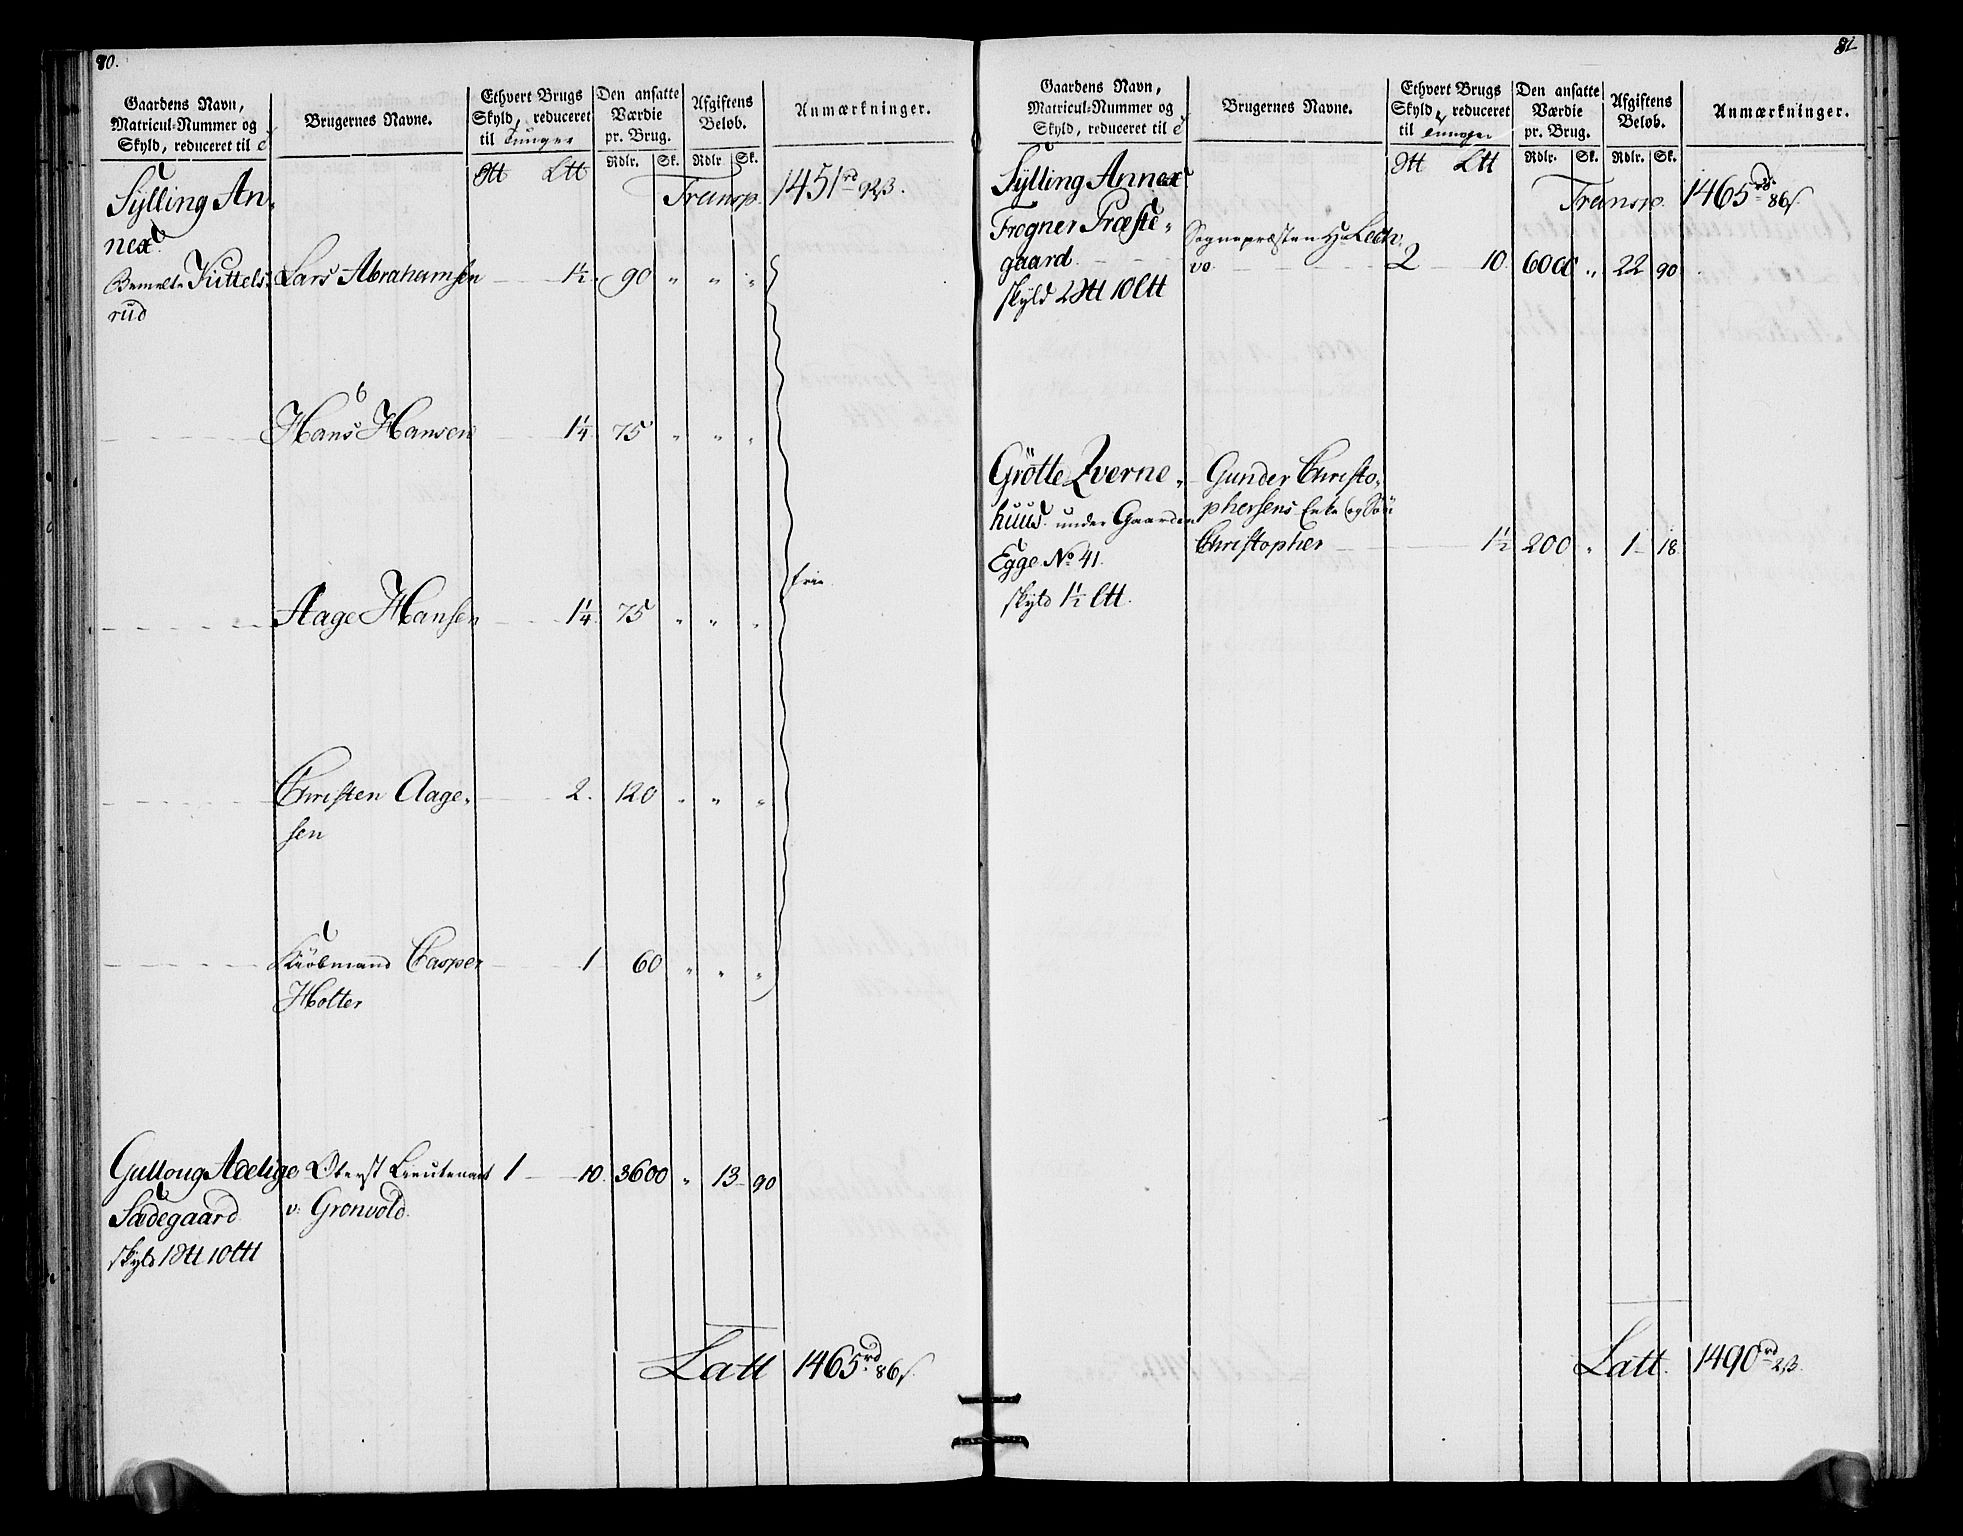 80.
Gaardens Navn,
Matricul-Nummer og
Skyld, reduceret til
Brugernes Navne.
Ethvert Brugs
Skyld, reduceret
til Tunger
Den ansatte
Værdie
pr. Brug.
Afgiftens
Beløb.
Anmærkninger.
Rdlr. Sk. Rdlr. Sk.
Sylling An-
nex
Transp. 1451 rd 92ß.
Bemelte Kittels-
rud
Lars Abrahamsen 1½ 90 " " "
Hans Hansen 1¼ 75 " " "
frie.
Aage Hansen 1¼ 75 " " "
Christen Aage-
sen 2. 120 " " "
Kiøbmand Casper
Holter 1 60 " " "
Gulloug Adelige
Sædegaard
skyld 1 10
Oberst Lieutenant
v: Grønvold. 1 10. 3600 " 13 90
Latt 1465 rd 86ß.
81
Gaardens Navn,
Matricul-Nummer og
Skyld, reduceret til
Brugernes Navne.
Ethvert Brugs
Skyld, reduceret
til Tunger
Den ansatte
Værdie
pr. Brug.
Afgiftens
Beløb.
Anmærkninger.
Rdlr. Sk. Rdlr. Sk.
Sylling Annex
Transp. 1465 rd 86ß.
Frogner Præste-
gaard
skyld 2 10
Sognepræsten Hr
2 10. 6000 " 22 90
Grøtte Qverne-
huus under Gaarden
Egge No 41.
skyld 1½
Gunder Christo-
phersens Enke og Søn
Christopher 1½ 200 " 1 18.
Latt. 1490 rd 2ß.